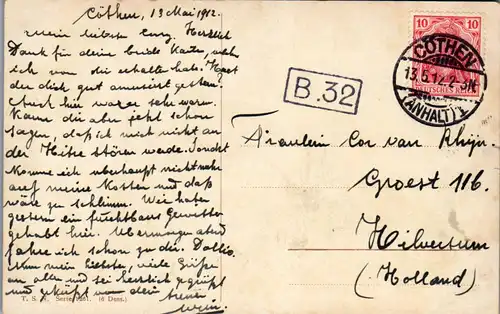 Cöthen, 13 Mai 1912.
Mein liebster Herzlich
Dank für deine beide Karten,
ich von dir erhalten habe. Hast
du dich gut amusiert gestern.
Auch hier war er sehr warm.
Kann dir aber jetzt schon
sagen, daß ich mich nicht an
der Hitze stören werde. Sonst
komme ich überhaupt nicht mehr
auf meine Kosten und daß
wäre zu schlimm. Wir haben
gestern ein furchtbares Gewitter
gehabt hier. Übermorgen abend
fahre ich schon zu dir.
Nun mein liebster, viele Grüße
an alle und sei herzlich gegrüßt
und geküßt von dein
treuer
T. S. N. Serie 1261. (6 Dess.)
10
DEUTSCHES REICH
CÖTHEN
13.5.12.2-3N
(ANHALT) 1
B.32
Fräulein Cor van Rhijn.
Groest 116.
Hilversum
(Holland)